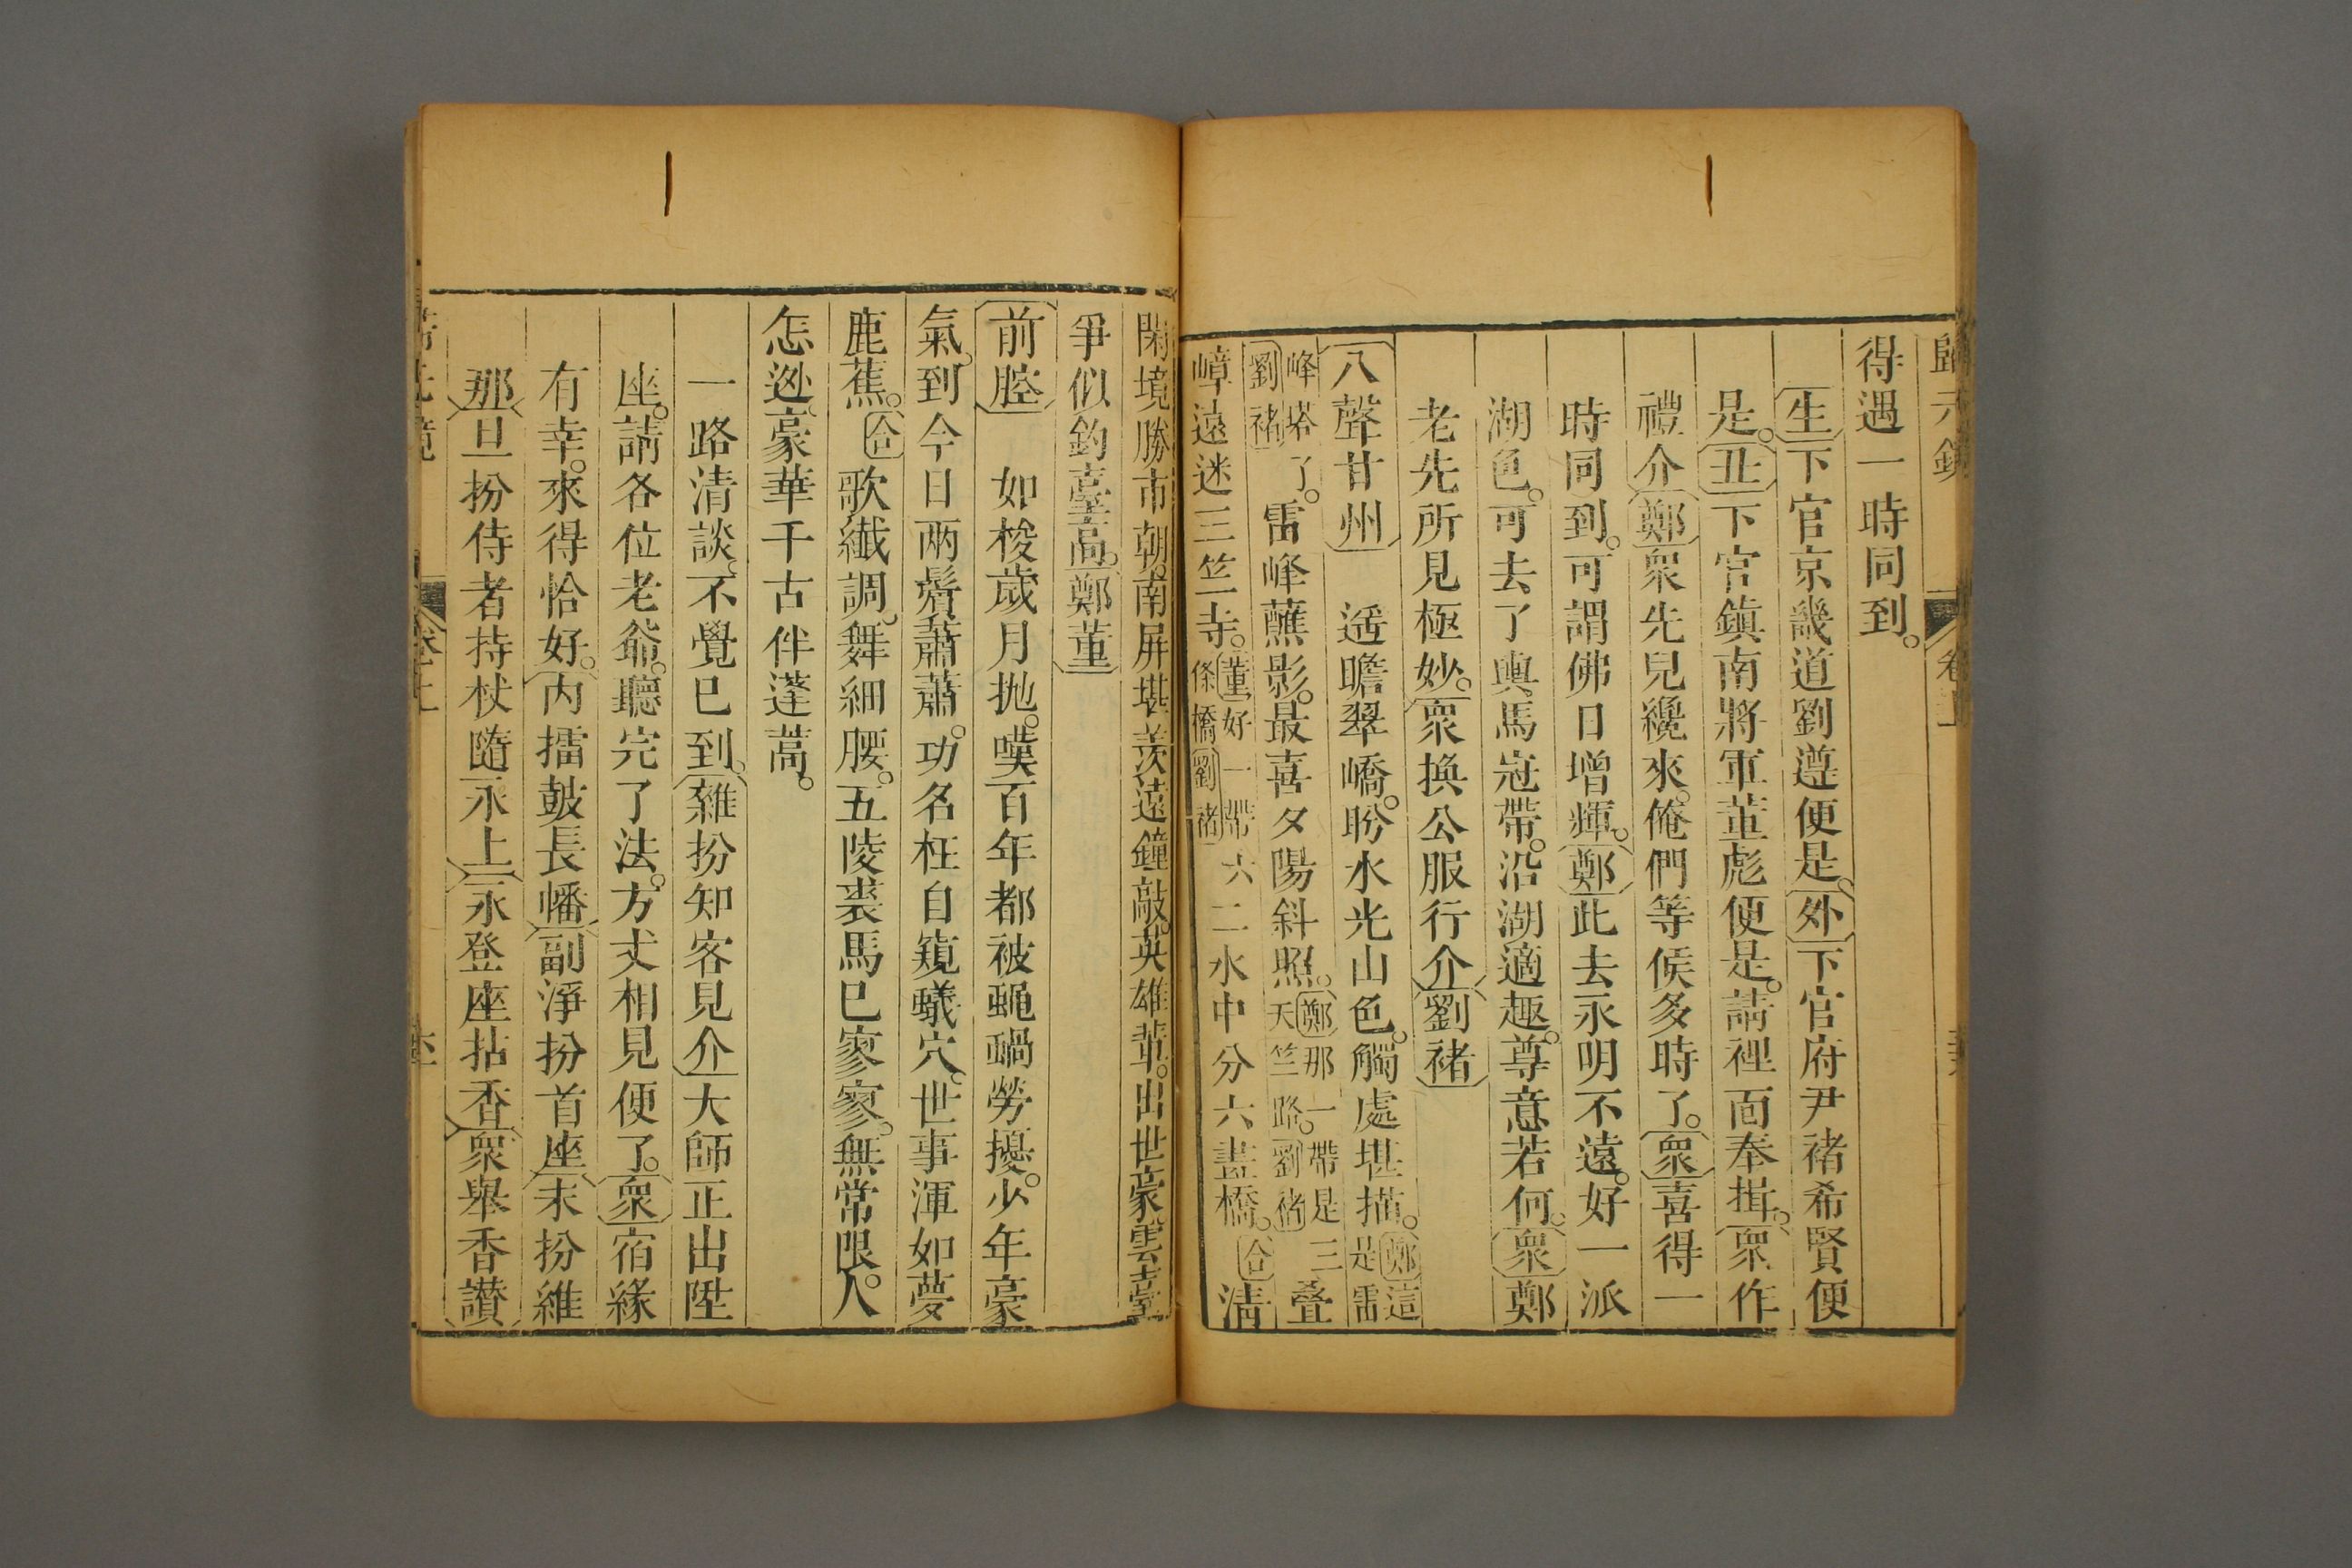 歸元鏡 卷上
得遇一時同到。
生下官京畿道劉遵便是。外下官府尹褚希賢便
是。丑下官鎮南將軍董彪便是。請裡面奉揖。衆作
禮介鄭衆先兒纔來。俺們等候多時了。衆喜得一
時同到。可謂佛日增輝。鄭此去永明不遠。好一派
湖色。可去了輿馬冠帶。沿湖適趣。尊意若何。衆鄭
老先所見極妙。衆換公服行介劉褚
八聲甘州 遥瞻翠嶠。盼水光山色。觸處堪描。鄭這是雷
峰塔了。劉褚雷峰蘸影。最喜夕陽斜照。鄭那一帶是三天竺路。劉褚三叠
嶂遠迷三竺寺。董好一帶條橋劉褚六二水中分六畫橋。合清
閑境勝市朝。南屏堪羨遠鐘敲。英雄輩。出世豪。雲臺
爭似釣臺高。鄭董
前腔 如梭歲月拋。嘆百年都被蠅蝸勞擾。少年豪
氣。到今日兩鬢蕭蕭。功名枉自窺蟻穴。世事渾如夢
鹿蕉。合歌纖調。舞細腰。五陵裘馬已寥寥。無常限。人
怎逊。豪華千古伴蓬蒿。
一路清談。不覺已到。雜扮知客見介大師正出陞
座。請各位老爺。聽完了法。方丈相見便了。衆宿緣
有幸。來得恰好。内擂鼓長幡副淨扮首座末扮維
那旦扮侍者持杖隨永上永登座拈香衆舉香讚